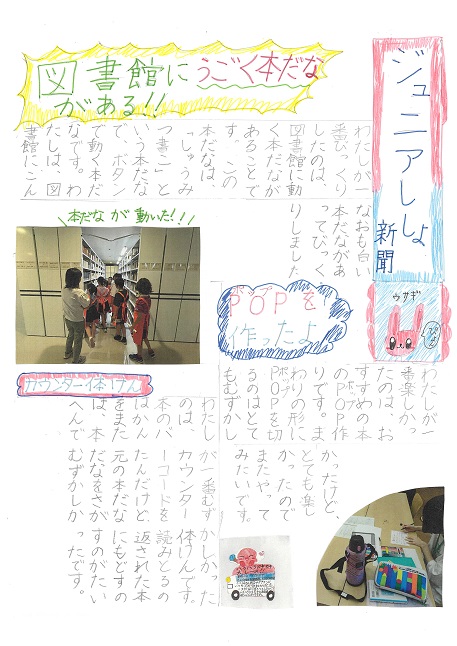 ジュニアししょ
新聞
ウサギ
図書館にうごく本だな
がある!!
わたしが一
番びっくり
したのは、
図書館に動
く本だなが
あることで
す。この
本だなは、
「しゅうみ
つ書こ」と
いう本だな
で、ボタン
で動く本だ
なです。わ
たしは、図
書館にこん
なおも白い
本だながあ
ってびっく
りしました
本だなが動いた!!!
POPを
作ったよ
わたしが一
番楽しかっ
たのは、お
すすめの本
のPOP作
りです。ま
わりの形に
POPを切
るのはとて
もむずかし
かったけど、
とても楽し
かったので
またやって
みたいです。
カウンター体けん
わたしが一番むずかしかった
のは、カウンター体けんです。
本のバーコードを読みとるの
はかんたんだけど、返された本
をまた元の本だなにもどすの
は、本だなをさがすのがたい
へんでむずかしかったです。